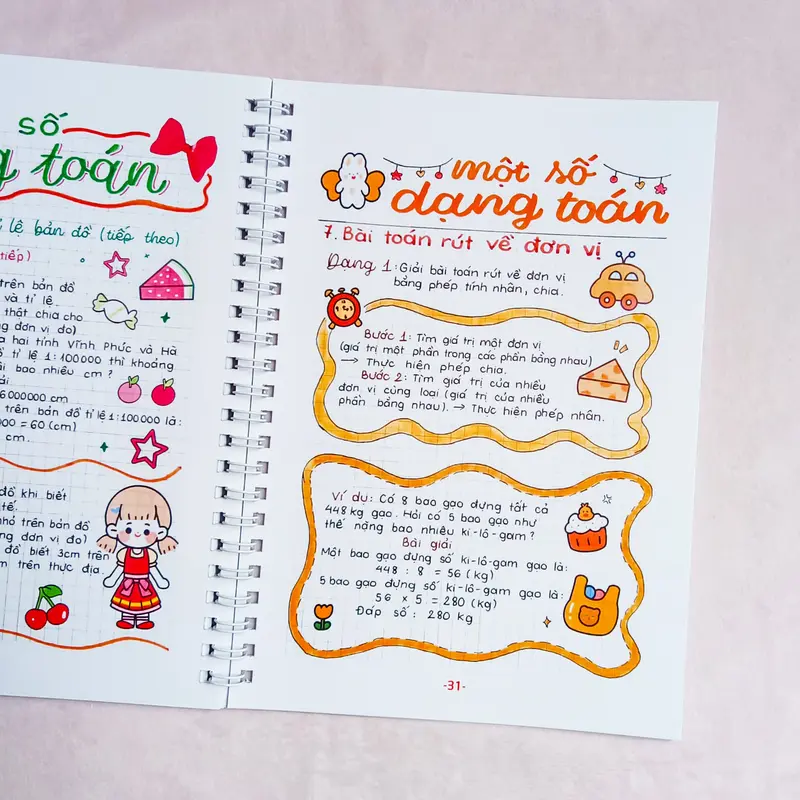 số
toán
lệ bản đồ (tiếp theo)
tiếp)
trên bản đồ
và tỉ lệ.
thật chia cho
đơn vị đo)
hai tỉnh Vĩnh Phúc và Hà
tỉ lệ 1:100000 thì khoảng
bao nhiêu cm?
6000000 cm
trên bản đồ tỉ lệ 1:100000 là:
= 60 (cm)
cm.
đồ khi biết
tế.
nhỏ trên bản đồ
đơn vị đo)
đồ biết 3cm trên
trên thực địa.
một số
dạng toán
7. Bài toán rút về đơn vị
Dạng 1: Giải bài toán rút về đơn vị
bằng phép tính nhân, chia.
Bước 1: Tìm giá trị một đơn vị
(giá trị một phần trong các phần bằng nhau)
→ Thực hiện phép chia.
Bước 2: Tìm giá trị của nhiều
đơn vị cùng loại (giá trị của nhiều
phần bằng nhau). → Thực hiện phép nhân.
Ví dụ: Có 8 bao gạo đựng tất cả
448 kg gạo. Hỏi có 5 bao gạo như
thế nặng bao nhiêu ki-lô-gam?
Bài giải
Một bao gạo đựng số ki-lô-gam gạo là:
448 : 8 = 56 (kg)
5 bao gạo đựng số ki-lô-gam gạo là:
56 × 5 = 280 (kg)
Đáp số : 280 kg
-31-